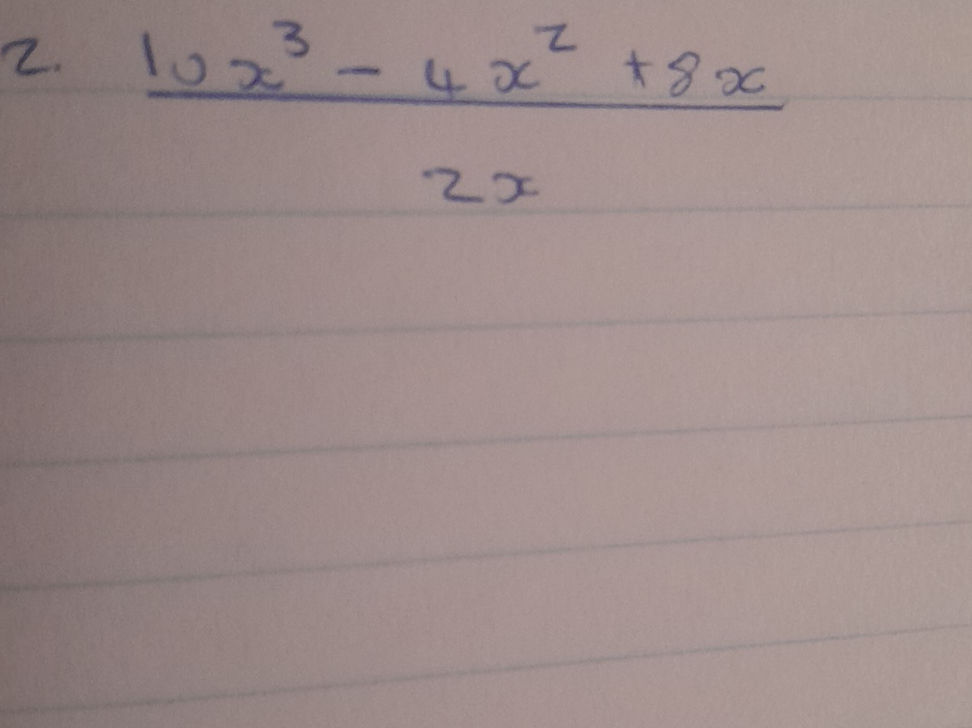 2. 10x³ - 4x² + 8x
2x